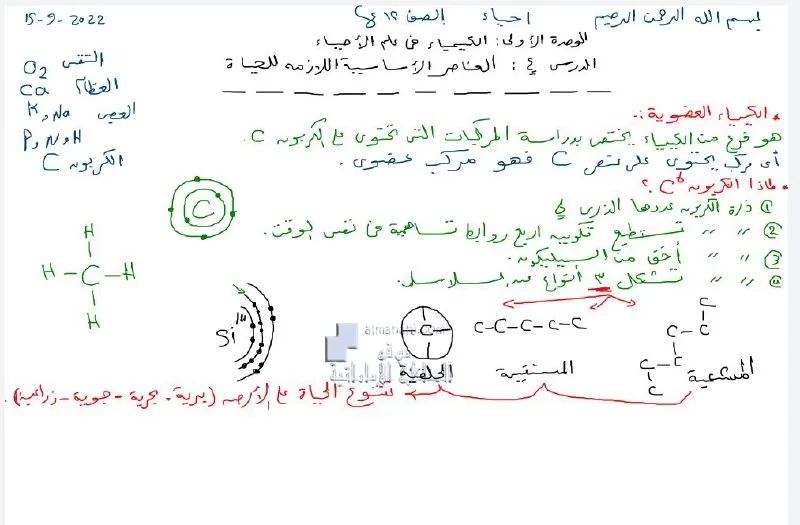 بسم الله الرحمن الرحيم احياء الصف ١٢ 15-9-2022
الوحدة الأولى: الكيمياء في علم الأحياء
الدرس ٤: العناصر الأساسية اللازمة للحياة
O2 التنفس
Ca العظام
K, Na العصب
P, N, H
C الكربون
* الكيمياء العضوية:-
هو فرع من الكيمياء يختص بدراسة المركبات التي تحتوي على الكربون C.
أي مركب يحتوي على عنصر C فهو مركب عضوي.
* لماذا الكربون C6 ؟
① ذرة الكربون عددها الذري
② " " تستطيع تكوين اربع روابط تساهمية في نفس الوقت.
③ " " أخف من السيليكون.
④ " " تشكل ٣ أنواع من السلاسل.
C
H
H - C - H
H
Si 14
C-C-C-C-C
C
C-C
C-C
C
المتشعبة المستقيمة الحلقية
almanahj.com
موقع
المناهج الإماراتية
تنوع الحياة على الأرض (برية - بحرية - جوية - زراعية).